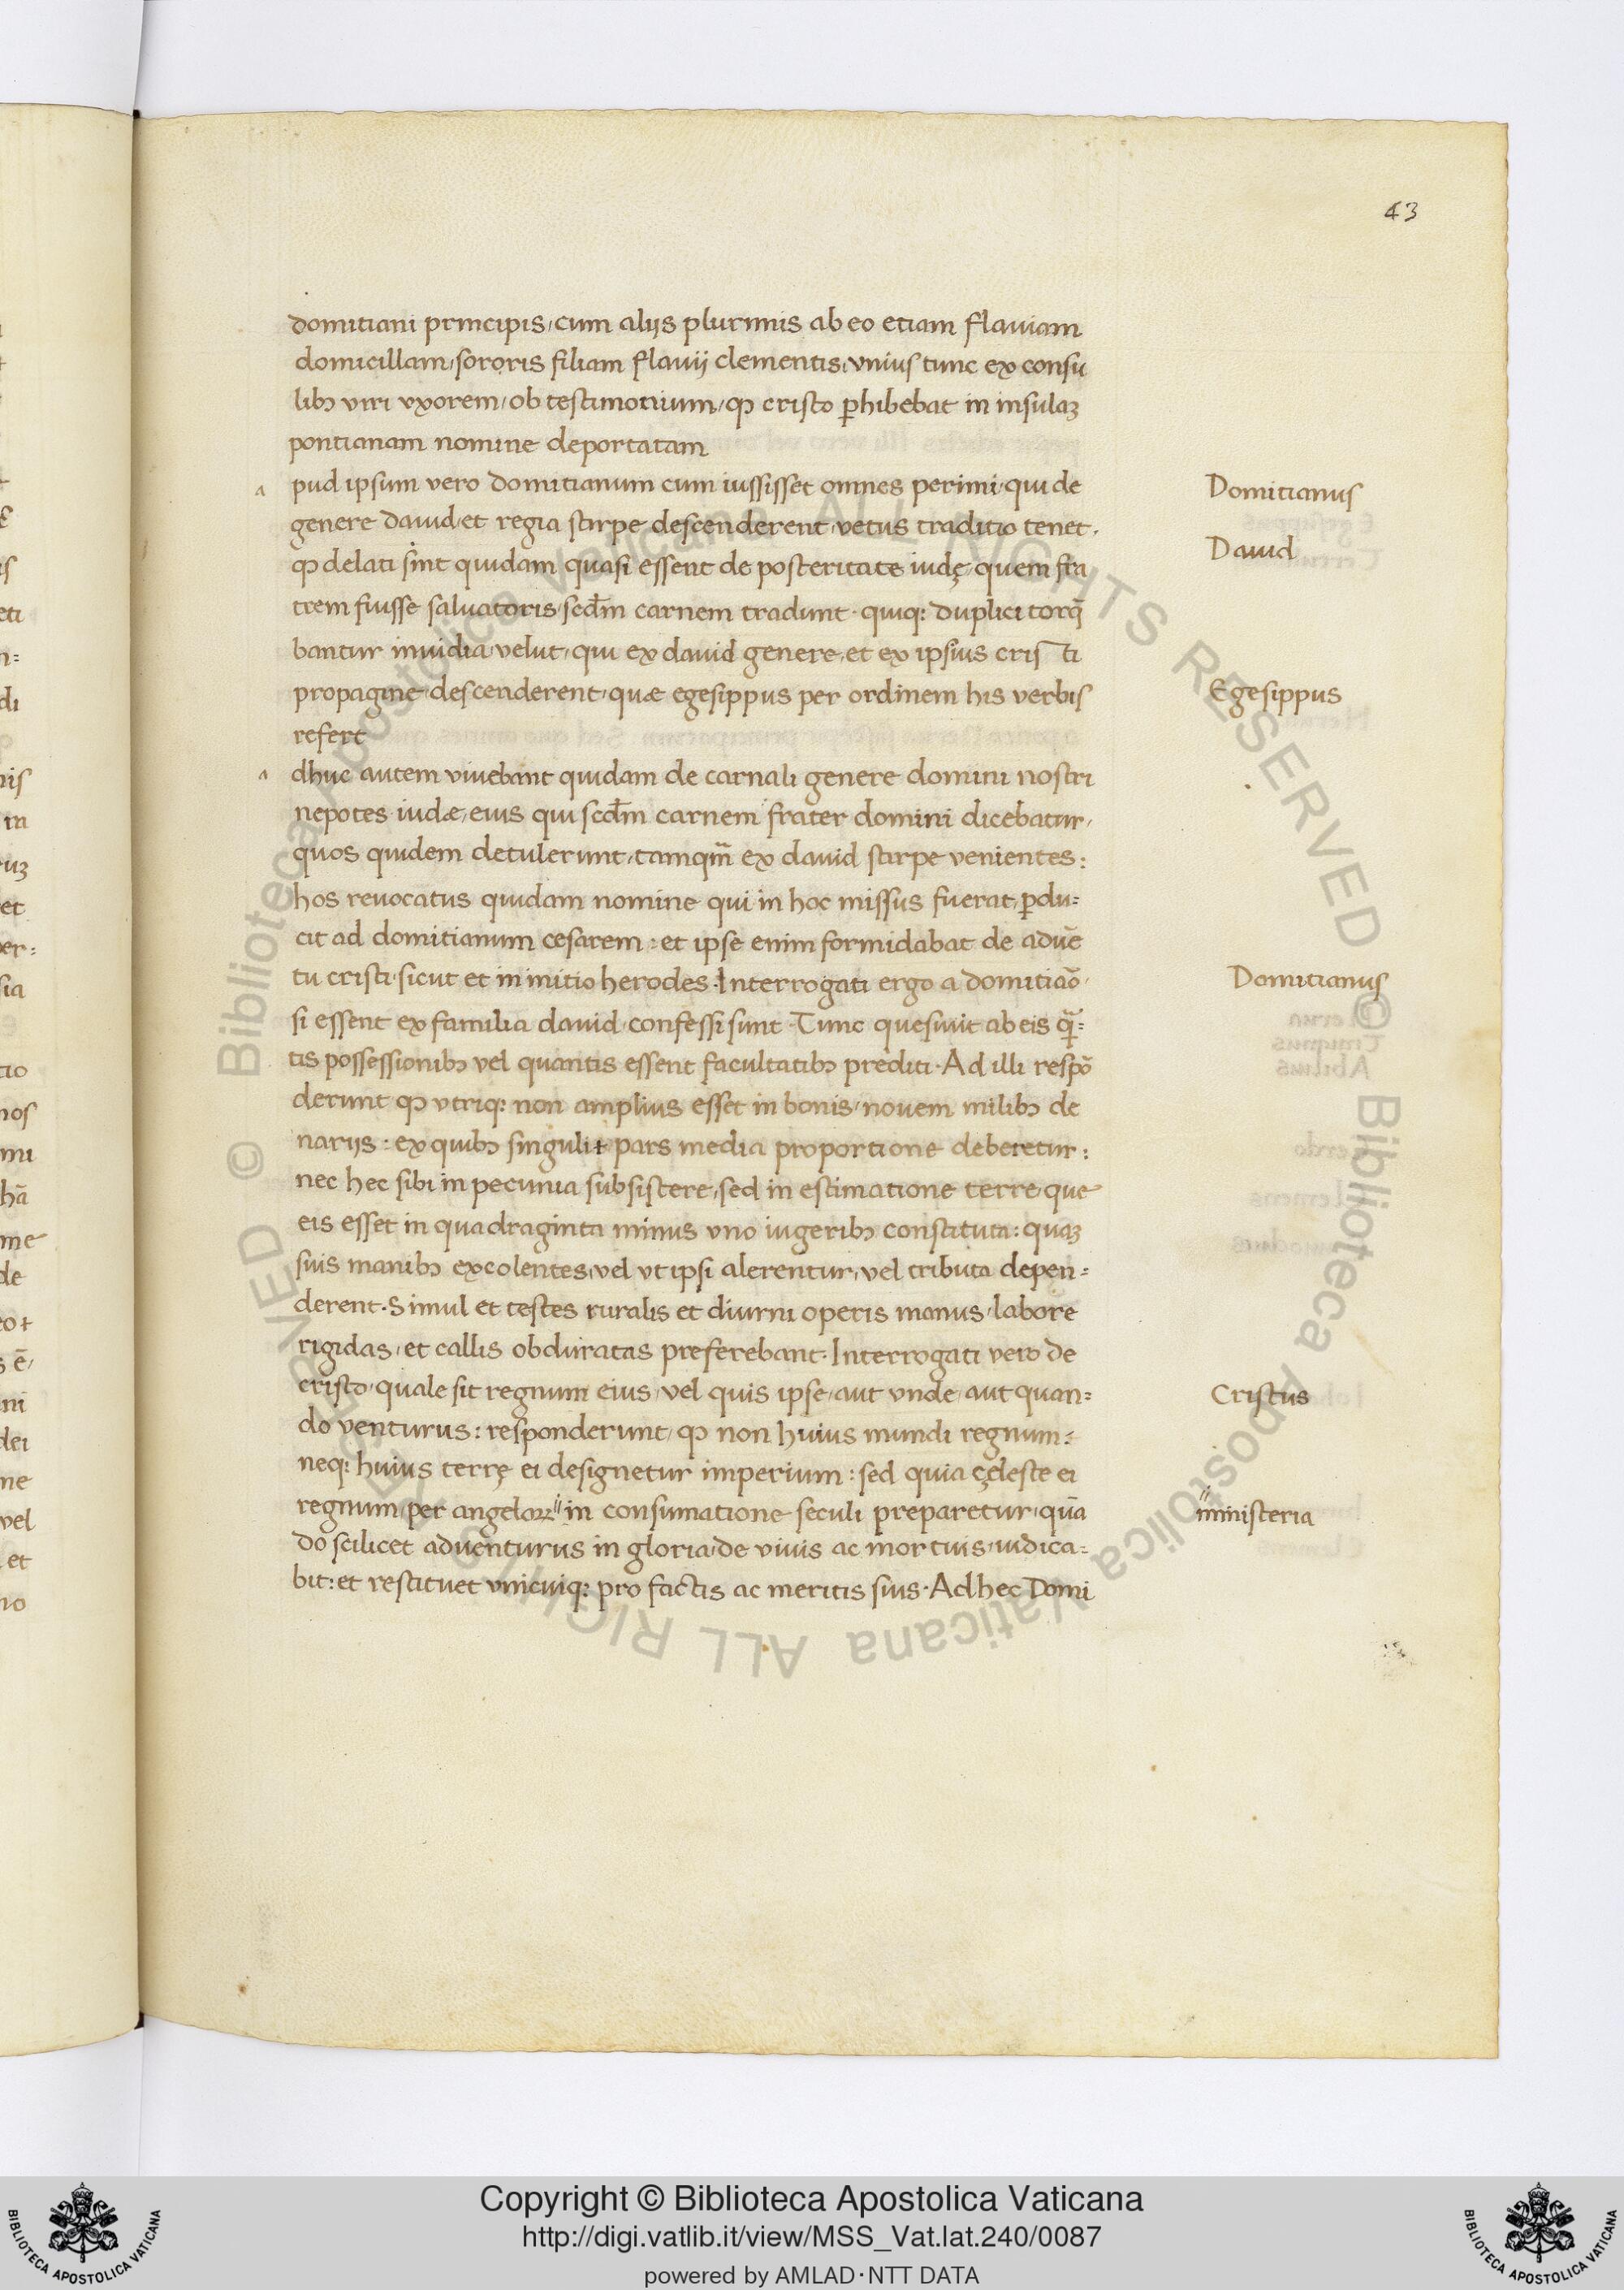 43
domitiani principis, cum alijs plurimis ab eo etiam flauiam
domicillam, sororis filiam flauij clementis, vnius tunc ex consu
libꝫ viri vxorem, ob testimonium, ꝙ cristo ꝑhibebat in insulaꝫ
pontianam nomine deportatam
a pud ipsum vero domitianum cum iussisset omnes perimi, qui de
Domitianus
genere dauid, et regia stirpe descenderent, vetus traditio tenet.
Dauid
ꝙ delati sint quidam quasi essent de posteritate iudę, quem fra
trem fuisse saluatoris, scd̄m carnem tradunt. quiqꝫ duplici torq̄
bantur inuidia, velut, qui ex dauid genere, et ex ipsius cris ti
propagine, descenderent, quæ egesippus per ordinem his verbis
Egesippus
refert
a dhuc autem viuebant quidam de carnali genere domini nostri
nepotes iudæ, eius qui scd̄m carnem frater domini dicebatur,
quos quidem detulerunt, tamqm̄ ex dauid stirpe venientes:
hos reuocatus quidam nomine qui in hoc missus fuerat, ꝑdu=
cit ad domitianum cesarem: et ipse enim formidabat de aduē
tu cristi, sicut et in initio herodes. Interrogati ergo a domitiāo,
Domitianus
si essent ex familia dauid, confessi sunt. Tunc quesiuit ab eis q̄=
tis possessionibꝫ vel quantis essent facultatibꝫ prediti. Ad illi respō
derunt ꝙ vtriqꝫ non amplius esset in bonis, nouem milibꝫ de
narijs: ex quibꝫ singulit pars media proportione deberetur:
nec hec sibi in pecunia subsistere, sed in estimatione terre, que
eis esset in quadraginta minus vno iugeribꝫ constituta: quaꝫ
suis manibꝫ excolentes, vel vt ipsi alerentur, vel tributa depen=
derent. Simul et testes ruralis et diurni operis manus, labore
rigidas, et callis obduratas preferebant. Interrogati vero de
cristo, quale sit regnum eius, vel quis ipse, aut vnde, aut quan=
Cristus
do venturus: responderunt, ꝙ non huius mundi regnum:
neqꝫ huius terrę ei designetur imperium: sed quia cęleste ei
regnum, per angeloꝝ " in consumatione seculi preparetur, quā
" ministeria
do scilicet aduenturus in gloria, de viuis ac mortuis, iudica=
bit: et restituet vnicuiqꝫ pro factis ac meritis suis. Ad hec Domi
© Biblioteca Apostolica Vaticana ALL RIGHTS RESERVED
© Biblioteca Apostolica Vaticana ALL RIGHTS RESERVED
Copyright © Biblioteca Apostolica Vaticana
http://digi.vatlib.it/view/MSS_Vat.lat.240/0087
powered by AMLAD·NTT DATA
BIBLIOTECA APOSTOLICA VATICANA
BIBLIOTECA APOSTOLICA VATICANA